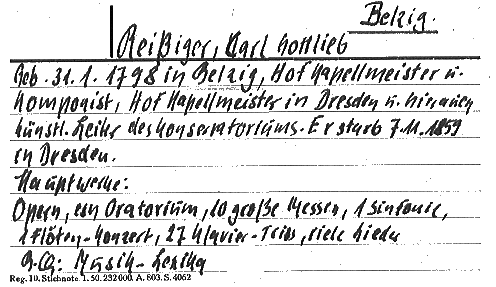 Belzig.
Reißiger, Karl Gottlieb
Geb. 31.1.1798 in Belzig, Hofkapellmeister u.
Komponist, Hofkapellmeister in Dresden u.
künstl. Leiter des Konservatoriums. Er starb 7.11.1859
in Dresden.
Hauptwerke:
Opern, ein Oratorium, 10 große Messen, 1 Sinfonie,
1 Flöten-Konzert, 27 Klavier-Trios, viele Lieder
Musik-Lexika
Reg. 10. Stichnote. 1. 50. 232000. A. 803. S. 4062